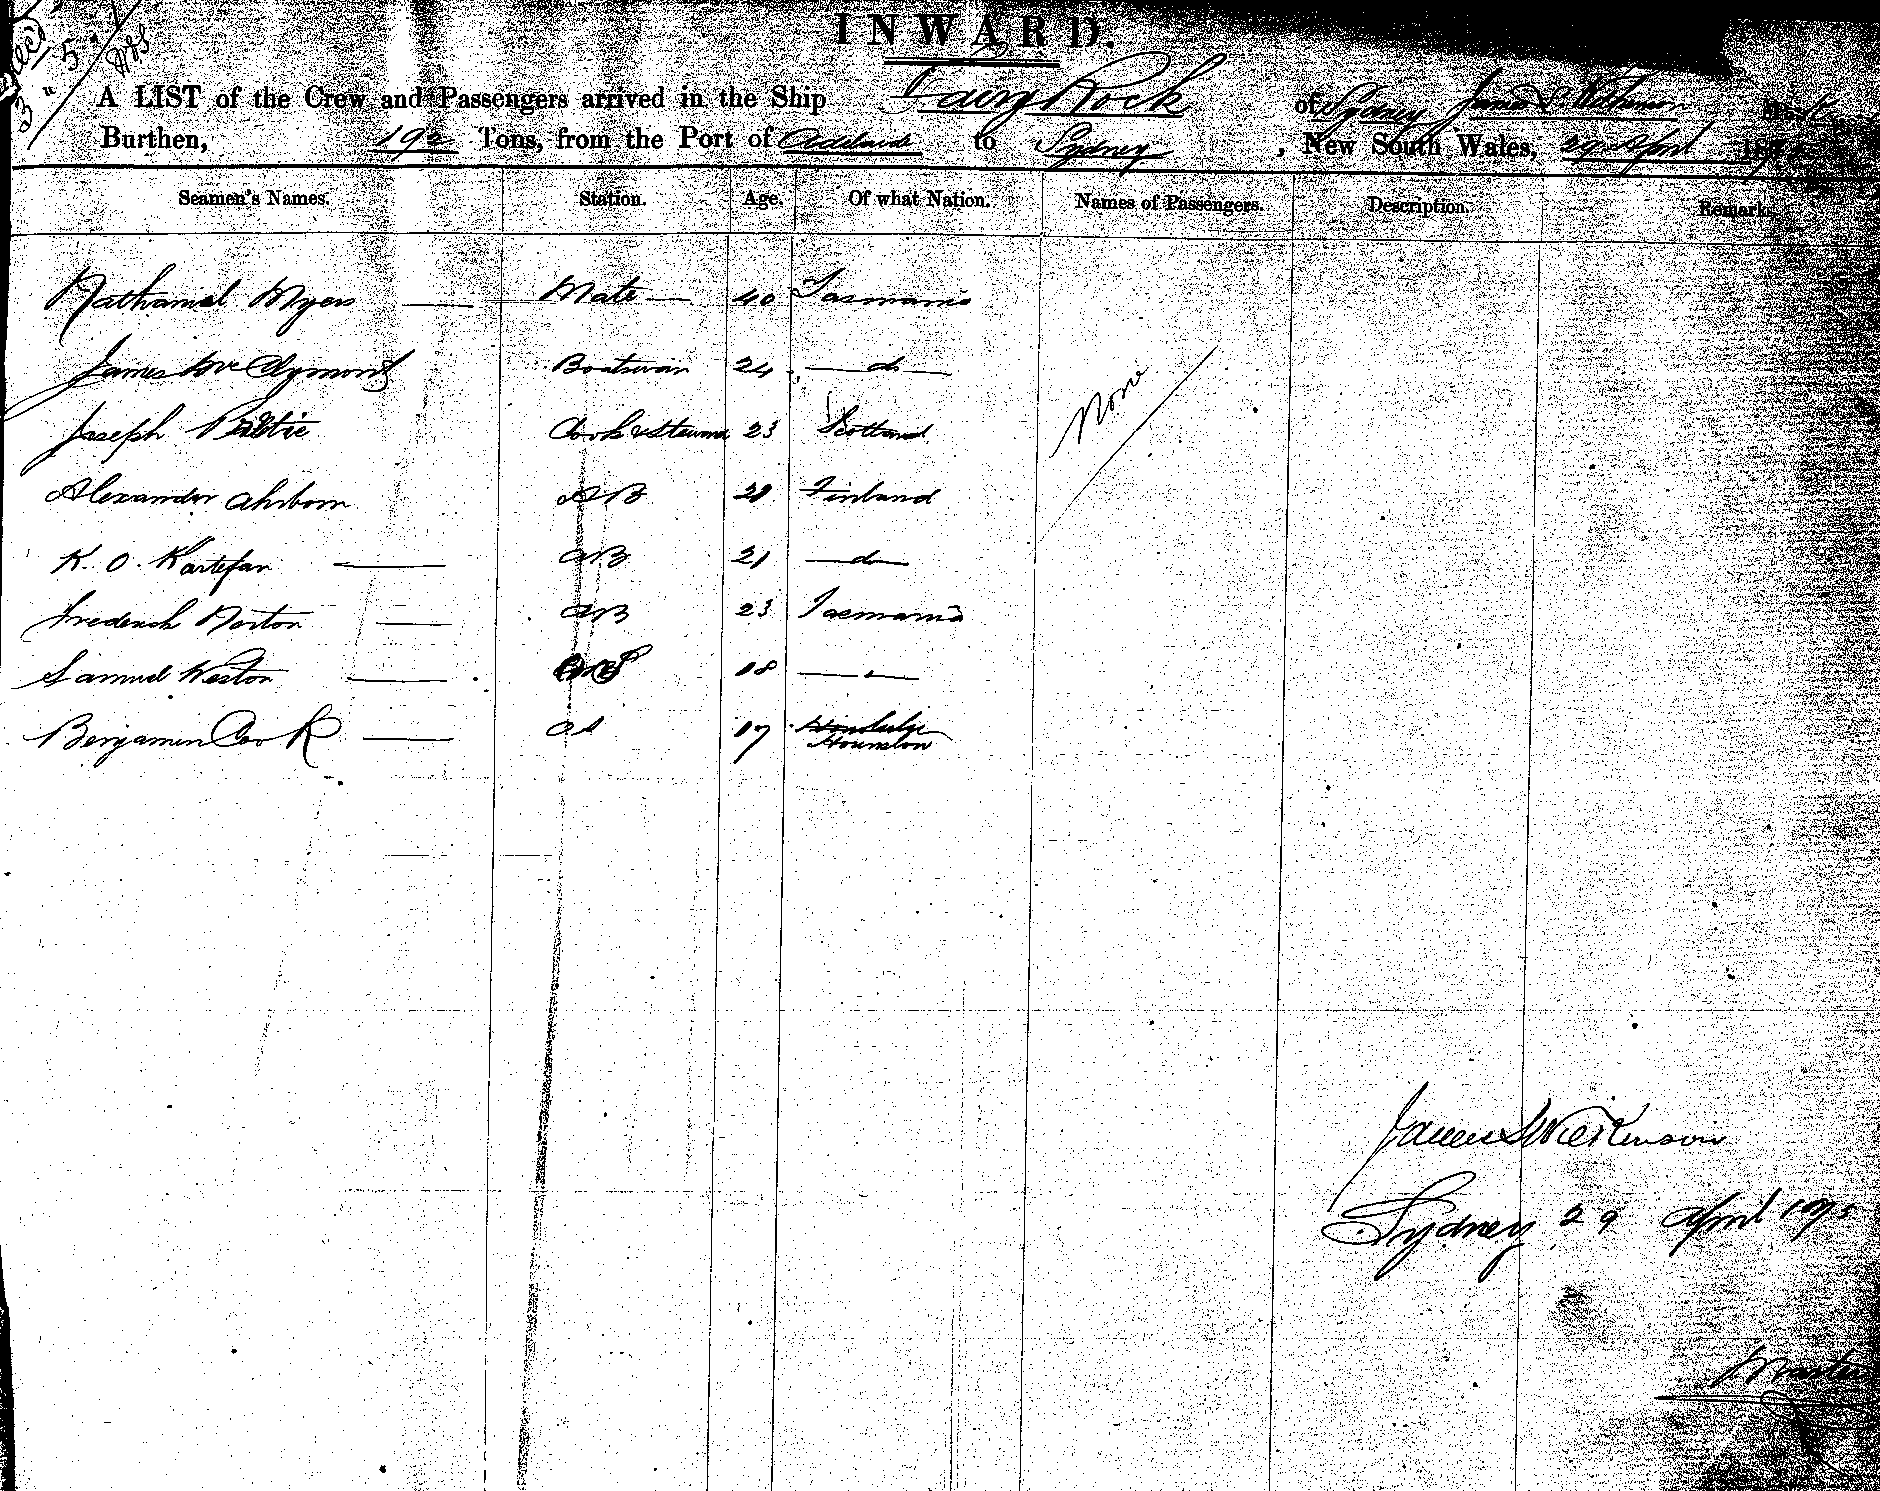 INWARD.
A LIST of the Crew and Passengers arrived in the Ship Fairy Rock of Sydney James S. Wilkinson
Burthen, 192 Tons, from the Port of Adelaide to Sydney, New South Wales, 29 April 187
Seamen's Names. Station. Age. Of what Nation. Names of Passengers. Description. Remarks
Nathaniel Myers Mate 40 Tasmania
James McClymont Boatswain 24 do
Joseph Cook & Steward 23 Scotland
None
Alexander Ahrbom AB 28 Finland
K. O. AB 21 do
Frederick Norton AB 23 Tasmania
Samuel Weston OS 18 "
Benjamin Cook OS 17
James S Wilkinson
Sydney 29 April 187
Master